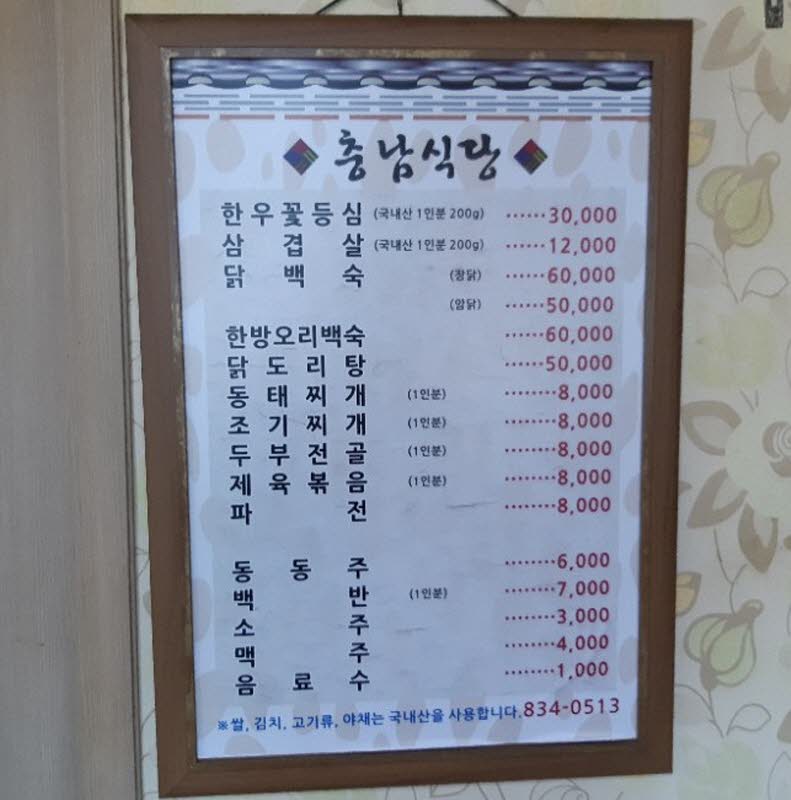 충남식당
한우꽃등심 (국내산 1인분 200g) ······30,000
삼겹살 (국내산 1인분 200g) ······12,000
닭백숙 (장닭) ······60,000
(암닭) ······50,000
한방오리백숙 ······60,000
닭도리탕 ······50,000
동태찌개 (1인분) ········8,000
조기찌개 (1인분) ········8,000
두부전골 (1인분) ········8,000
제육볶음 (1인분) ········8,000
파전 ········8,000
동동주 ········6,000
백반 (1인분) ········7,000
소주 ········3,000
맥주 ········4,000
음료수 ········1,000
※쌀, 김치, 고기류, 야채는 국내산을 사용합니다. 834-0513